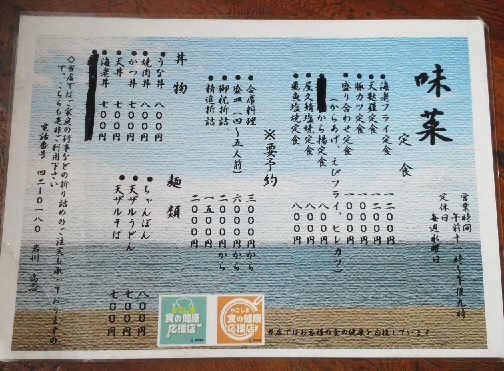 味菜
定食
営業時間
午前十一時～午後九時
定休日 毎週水曜日
●海老フライ定食 一二〇〇円
●天麩羅定食 一二〇〇円
●豚カツ定食 一〇〇〇円
●盛り合わせ定食 一二〇〇円
(からあげ、えびフライ、ヒレカツ)
から揚定食 八〇〇円
●屋久鯖塩焼定食 八〇〇円
●飛魚塩焼定食 八〇〇円
※要予約
●会席料理 三〇〇〇円から
●盛皿(四～五人前) 六〇〇〇円から
●御祝折詰 一五〇〇円から
●精進折詰 二〇〇〇円から
丼物
●うな丼 八〇〇円
●焼肉丼 八〇〇円
●かつ丼 七〇〇円
●天丼 七〇〇円
●海老丼 七〇〇円
麺類
●ちゃんぽん 八〇〇円
●天ザルうどん 七〇〇円
●天ザルそば 七〇〇円
◇当店ではご家庭の行事などの折り詰めのご注文も承っておりますの
で、こちらも是非ご利用下さい。
電話番号 四二-〇一八〇
かごしま
食の健康
応援店
かごしま
食の健康
応援店
当店ではお客様の食の健康を応援しています